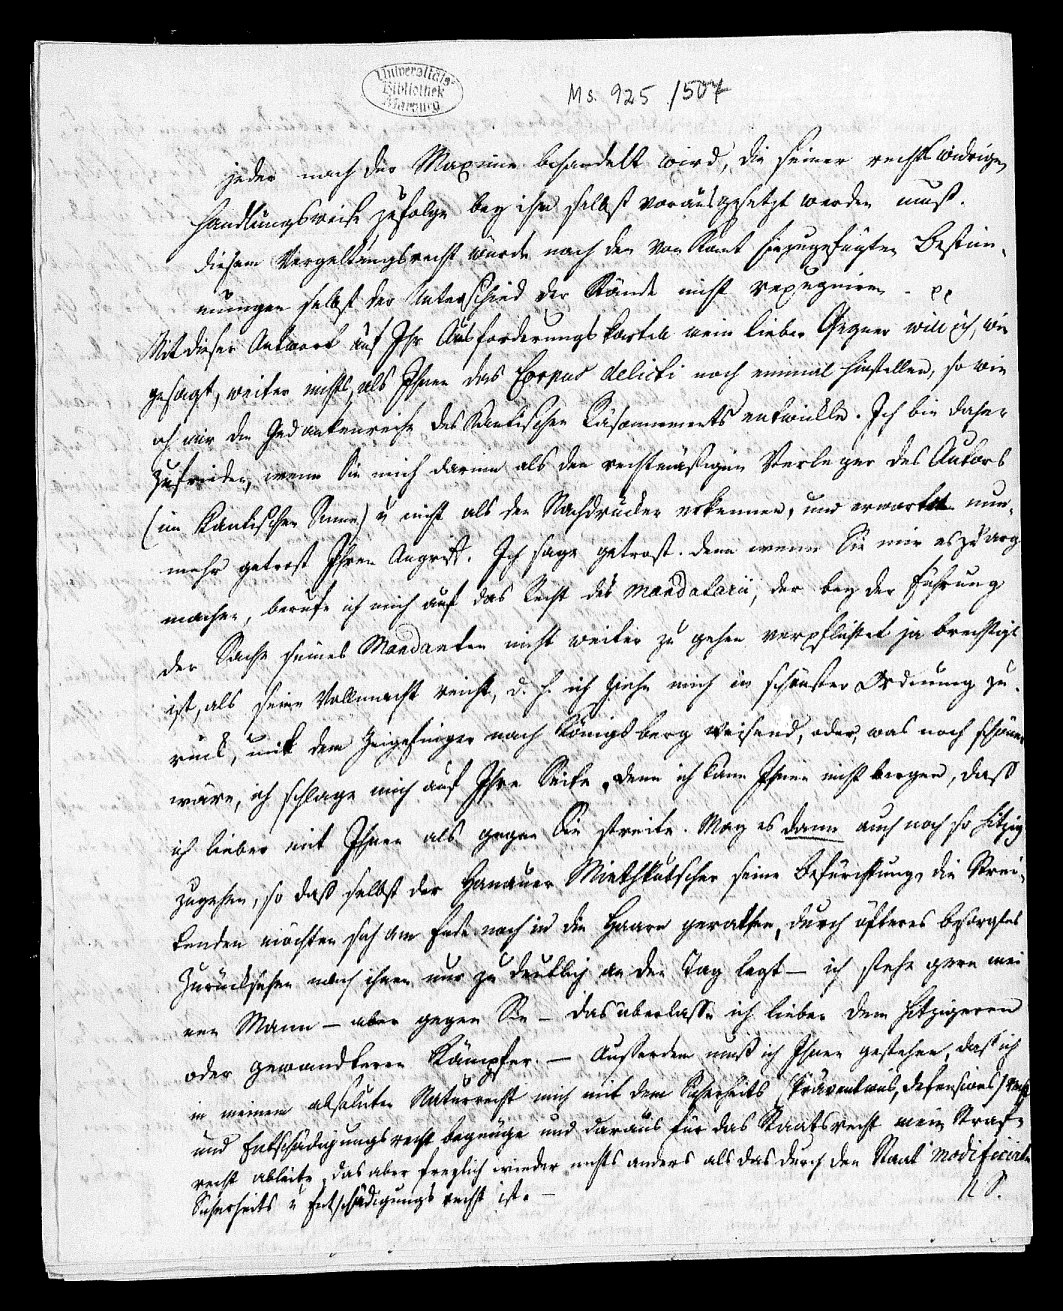 Universitäts
Bibliothek
Marburg
Ms. 925 /507
jeder nach der Maxime behandelt wird, die seiner rechtswidrigen
Handlungsweise zufolge bey ihm selbst vorausgesetzt werden muß.
Diesem Vergeltungsrecht würde nach den von Kant hinzugefügten Bestim-
mungen selbst der Unterschied der Stände nicht repugniren.
Mit dieser Antwort auf Ihr Ausforderungskartell mein lieber Gegner will ich, wie
gesagt, weiter nichts, als Ihnen das Corpus delicti noch einmal hinstellen, so wie
ich mir die Gedankenreihe des Kantischen Räsonnements entwickle. Ich bin daher
zufrieden, wenn Sie mich darinn als den rechtmäßigen Verleger des Autors
(im Kantischen Sinne) u nicht als den Nachdrucker erkennen, und erwarte nun-
mehr getrost Ihren Angriff. Ich sage getrost. denn wenn Sie mir es zu arg
machen, berufe ich mich auf das Recht des Mandatarii, der bey der Führung
der Sache seines Mandanten nicht weiter zu gehen verpflichtet ja berechtigt
ist, als seine Vollmacht reicht, d. h. ich ziehe mich in schönster Ordnung zu-
rück, mit dem Zeigefinger nach Königsberg weisend, oder, was noch schöner
wäre, ich schlage mich auf Ihre Seite, denn ich kann Ihnen nicht bergen, daß
ich lieber mit Ihnen als gegen Sie streite. Mag es dann auch noch so hitzig
zugehen, so daß selbst der Hanauer Miethkutscher seine Befürchtung, die Strei-
tenden möchten sich am Ende noch in die Haare gerathen, durch öfteres besorgtes
Zurücksehen nach ihnen nur zu deutlich an den Tag legt — ich stehe gern mei
nen Mann — aber gegen Sie — das überlasse ich lieber dem hitzigeren
oder gewandteren Kämpfer. — Außerdem muß ich Ihnen gestehen, daß ich
in meinem absoluten Naturrecht mich mit dem Sicherheits (Präventions, Defensions) recht
und Entschädigungsrecht begnüge und daraus für das Staatsrecht mein Straf-
recht ableite, das aber freylich wieder nichts anders als das durch den Staat modificirte
Sicherheits u Entschädigungsrecht ist. —
N S.